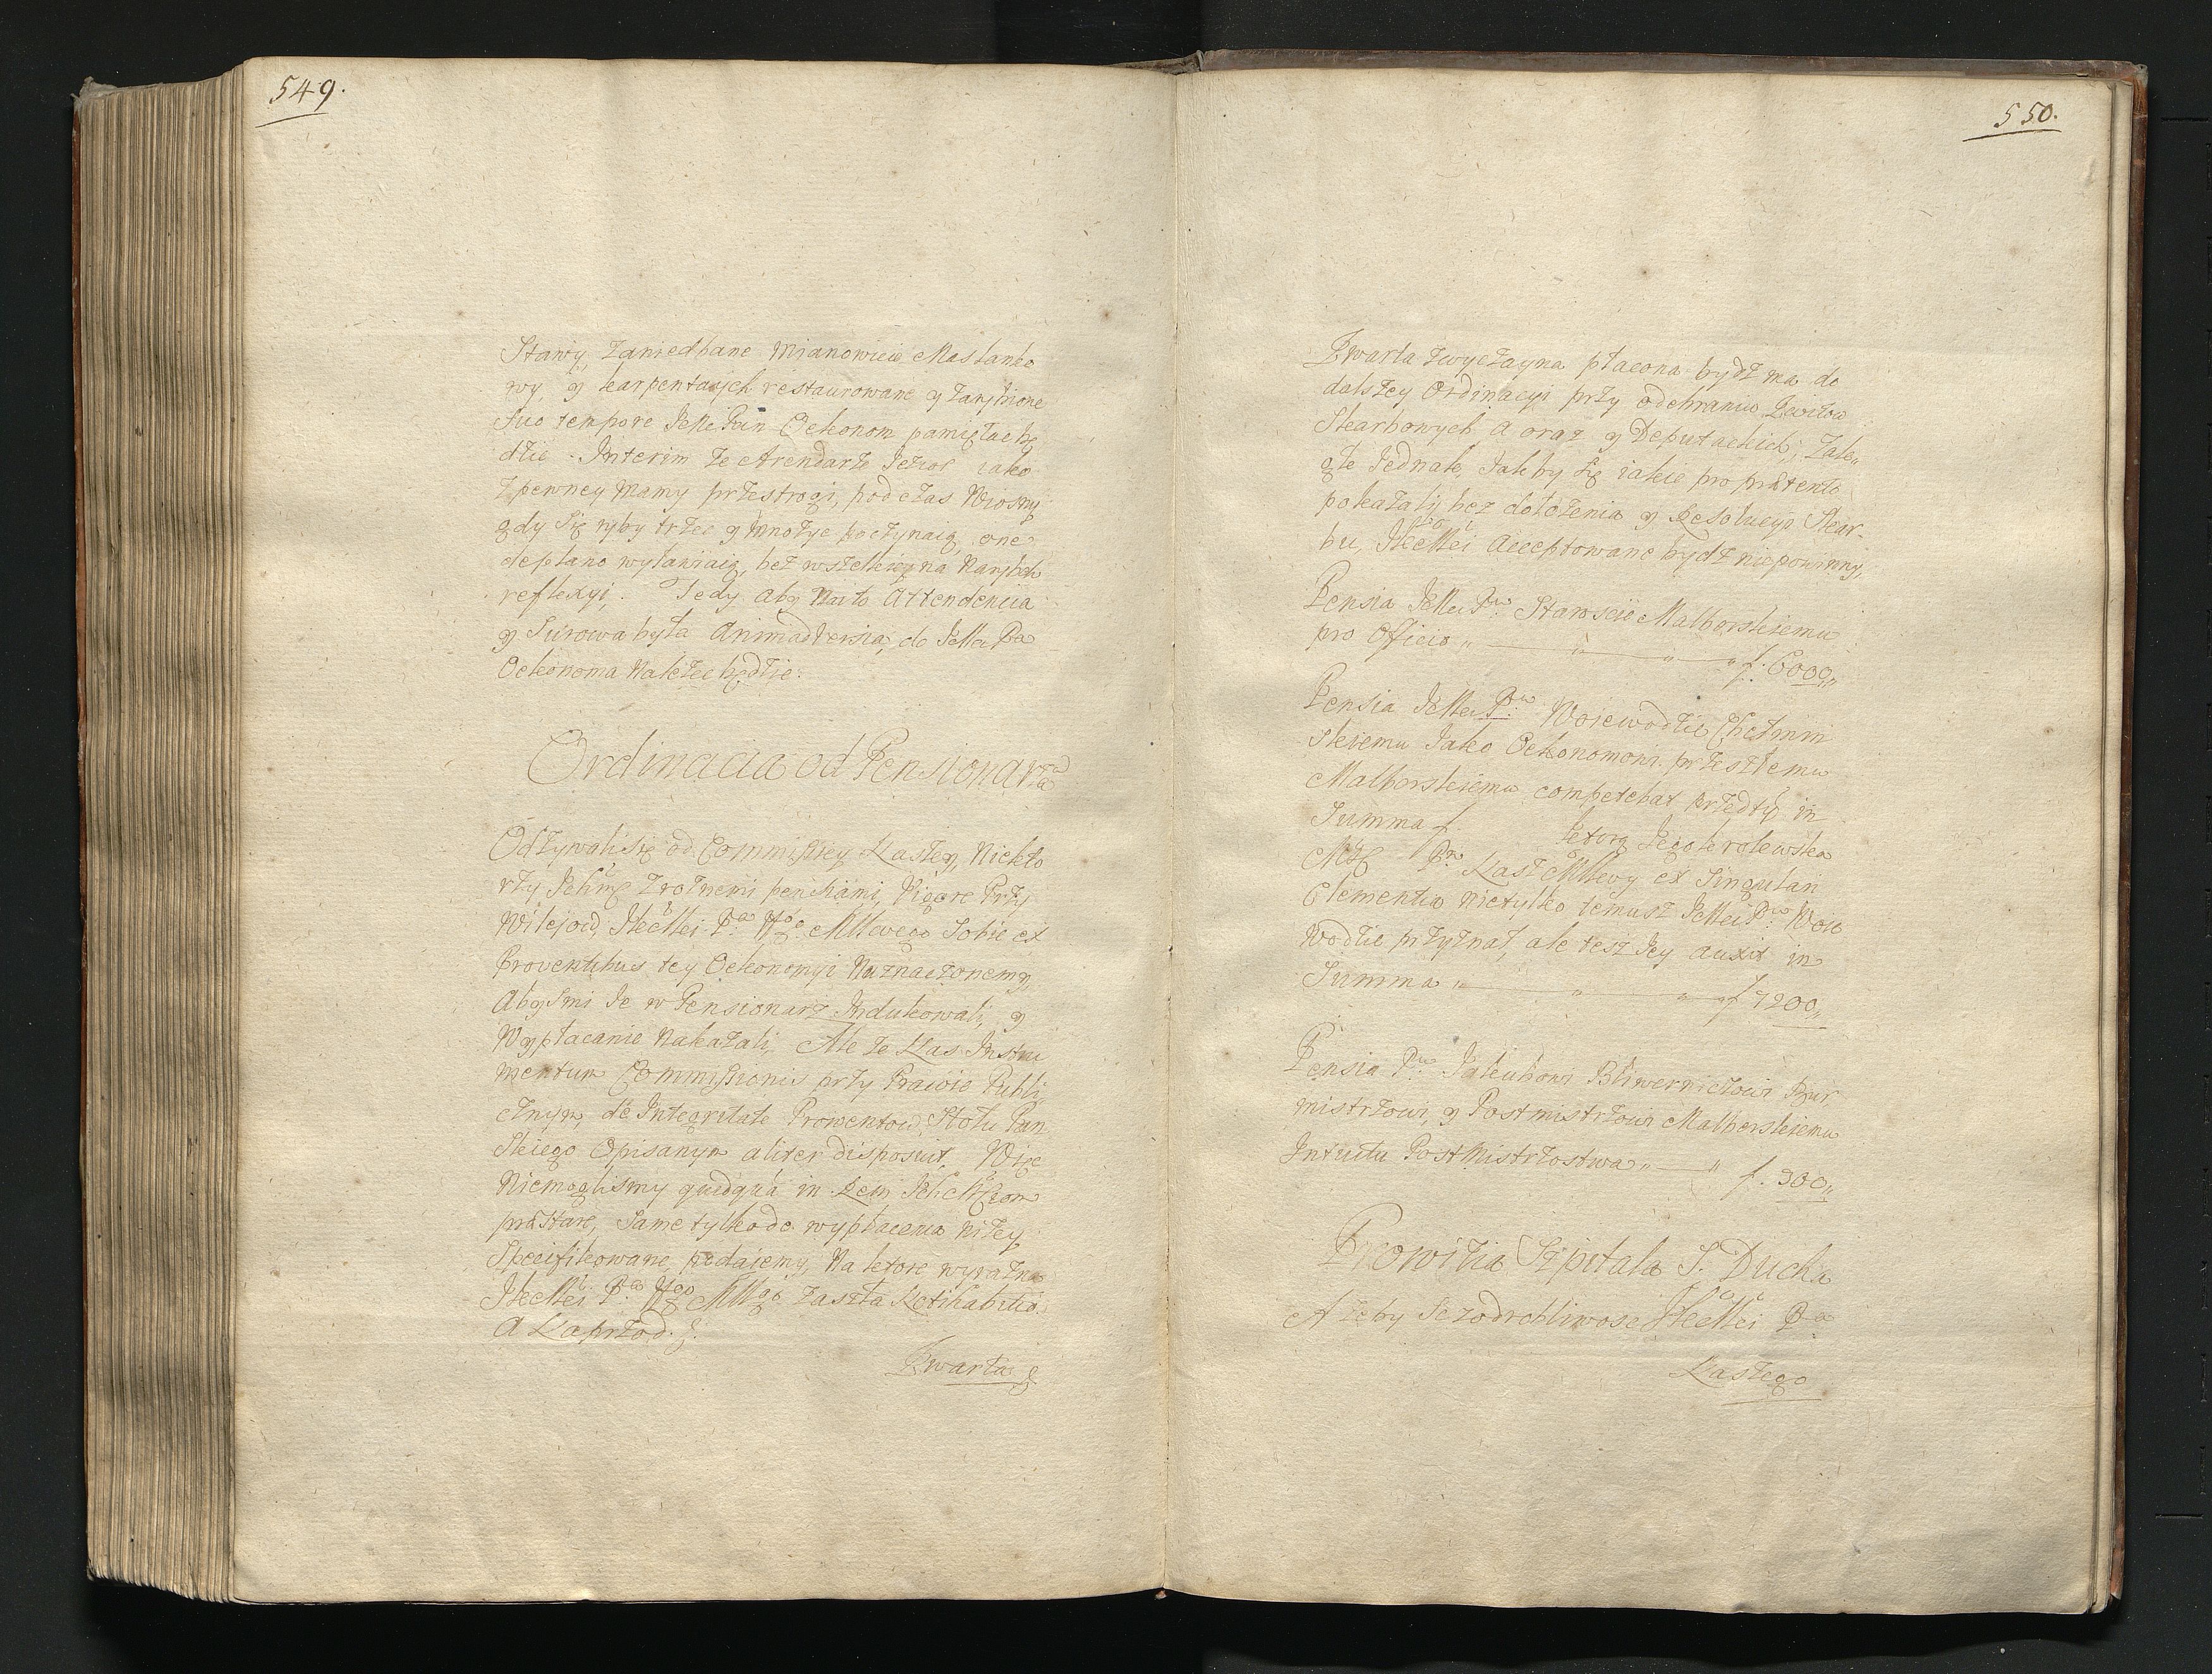 549.
Stawy, zaniedbane mianowicie Maslanko
wy, y karpentarjch restaurowane y zarybione
suo tempore JeMc Pan Oekonom pamiętać bę
dzie. Interim ze Arendarze Jezior iako
z pewney mamy przestrogi, podczas Wiosny
gdy się ryby trzec y mnożyc poczynaią, one
deplano wyławiaią, bez wszelkiey na Narybek
reflexyi. Tedy aby na to Attendencia
y surowa była Animadversia, do JeMci Pa
Oekonoma należec będzie.
Ordinacia od Pensionarza
Odzywali się od Commissiey Naszey, Niekto
rzy Ichmc z roznemi pensiami, vigore Przy
wilejow, JKMci Pa Ngo MMwego sobie ex
Proventibus tey Oekonomyi Naznaczonemy,
Abysmi Je w Pensionarz Indukowali, y
Wypłacanie Nakazali. Ale ze Nas Instru
mentum Commissionis przy Prawie Publi
cznym, de Integritate Prowentow Stołu Pan
skiego Opisanym aliter disposuit, Więc
Niemoglismy quidqua in Rem IchMciow
præstare, same tylko do wypłacenia niżey
Specifikowane podajemy, Na ktore wyrazna
JKMci Pa Ngo MMgo zaszła Ratihabitio.
A Naprzod.
Kwarta
550.
Kwarta zwyczayna płacona bydź ma do
dalszey Ordinacyi przy odebraniu Kwitow
Skarbowych a oraz y Deputackich, Zale„
głe Jednak, Jakby się iakie pro prætento
pokazały bez dołożenia y Resolucyi Skar-
bu, JKMci acceptowane bydź niepowinny,
Pensia JeMci Pu Staroscie Malborskiemu
pro Officio „ „ „ „ f. 6000„
Pensia JeMci Pu Woiewodzie Chełmin
skiemu Jako Oekonomowi przeszłemu
Malborskiemu competebat przedtym in
Summa f. ktorą Jego krolewska
Mść Pn Nasz MMwy ex Singulari
Clementia nietylko temusz JeMci Pu Woie
wodzie przyznał, ale tesz Jey auxit in
Summa „ „ „ f 7200„
Pensia Pu Jakubowi Bliwerniczowi Bur„
mistrzowi, y Postmistrzowi Malborskiemu
Intuitu PostMistrzostwa „ „ f. 300„
Prowizia Szpitala S. Ducha
A żeby Sczodrobliwosc JKMci Pa
Naszego